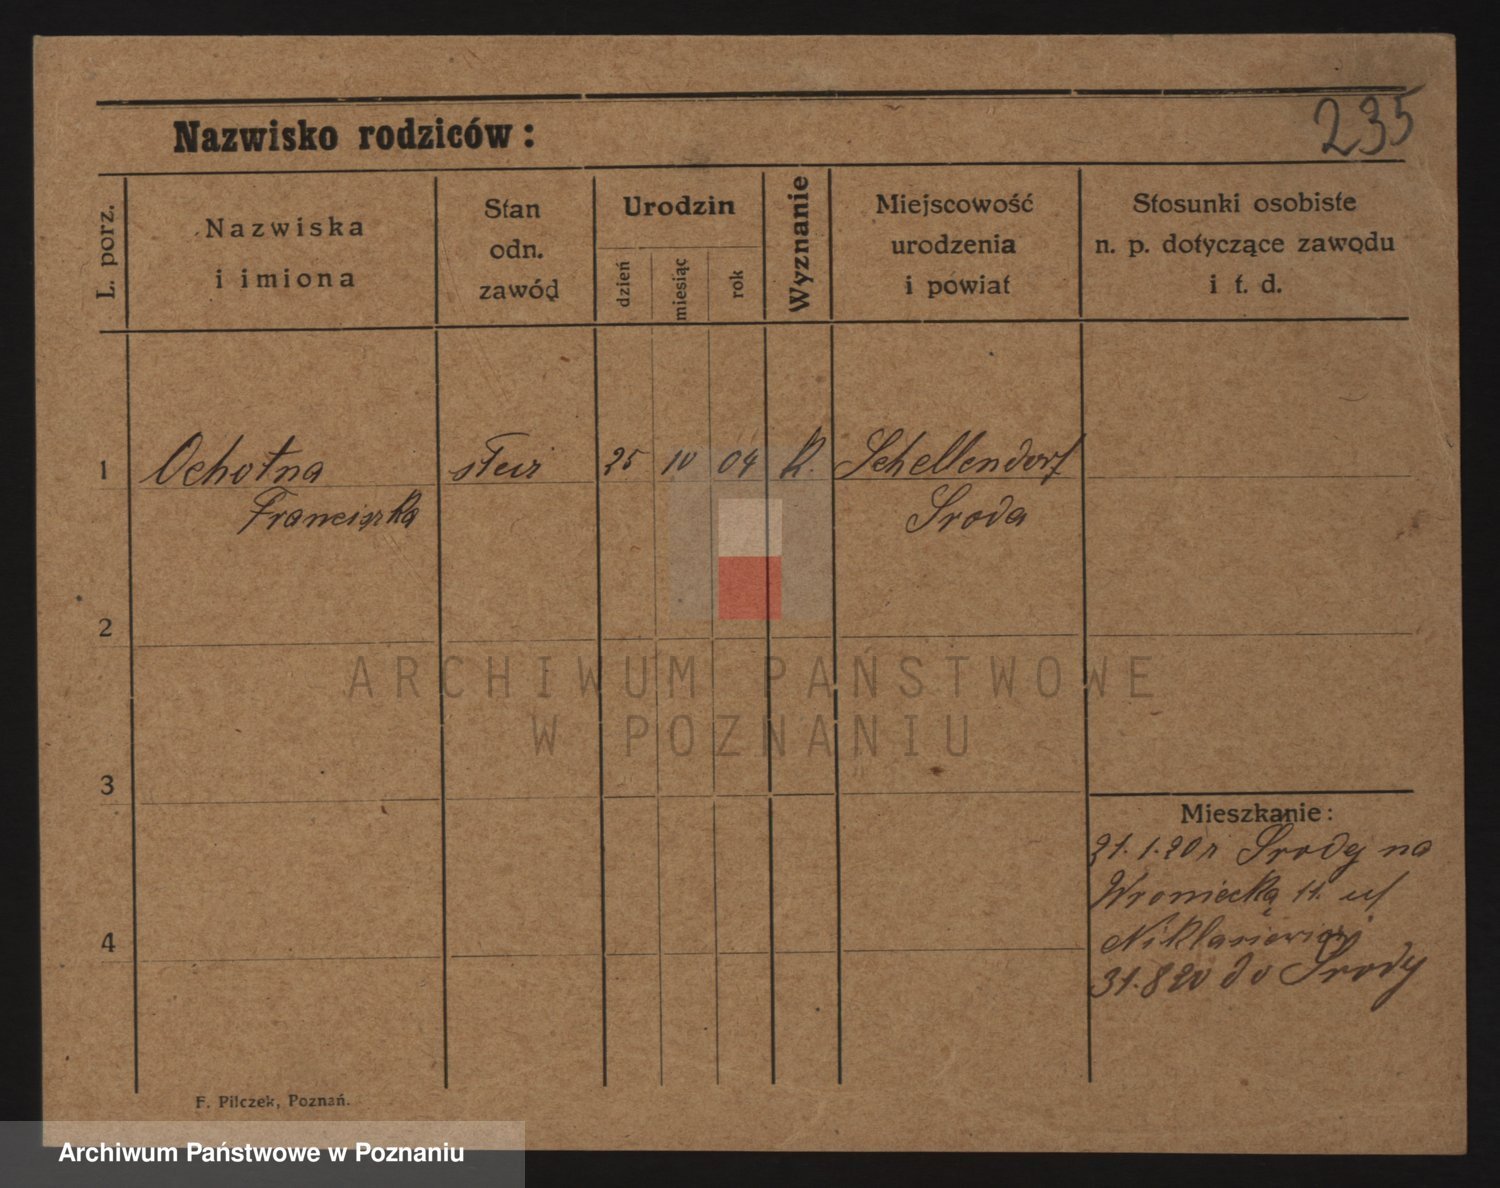 235
Nazwisko rodziców:
L. porz.
Nazwiska
i imiona
Stan
odn.
zawód
Urodzin
dzień
miesiąc
rok
Wyznanie
Miejscowość
urodzenia
i powiat
Stosunki osobiste
n. p. dotyczące zawodu
i t. d.
1 Ochotna 25 10 04 k. Schellendorf
Franciszka Sroda
2
3
Mieszkanie:
21.1.20 z Srody na
Wroniecką 11. u/
4
31.8 20 do Srody
F. Pilczek, Poznań.
ARCHIWUM PAŃSTWOWE
W POZNANIU
Archiwum Państwowe w Poznaniu